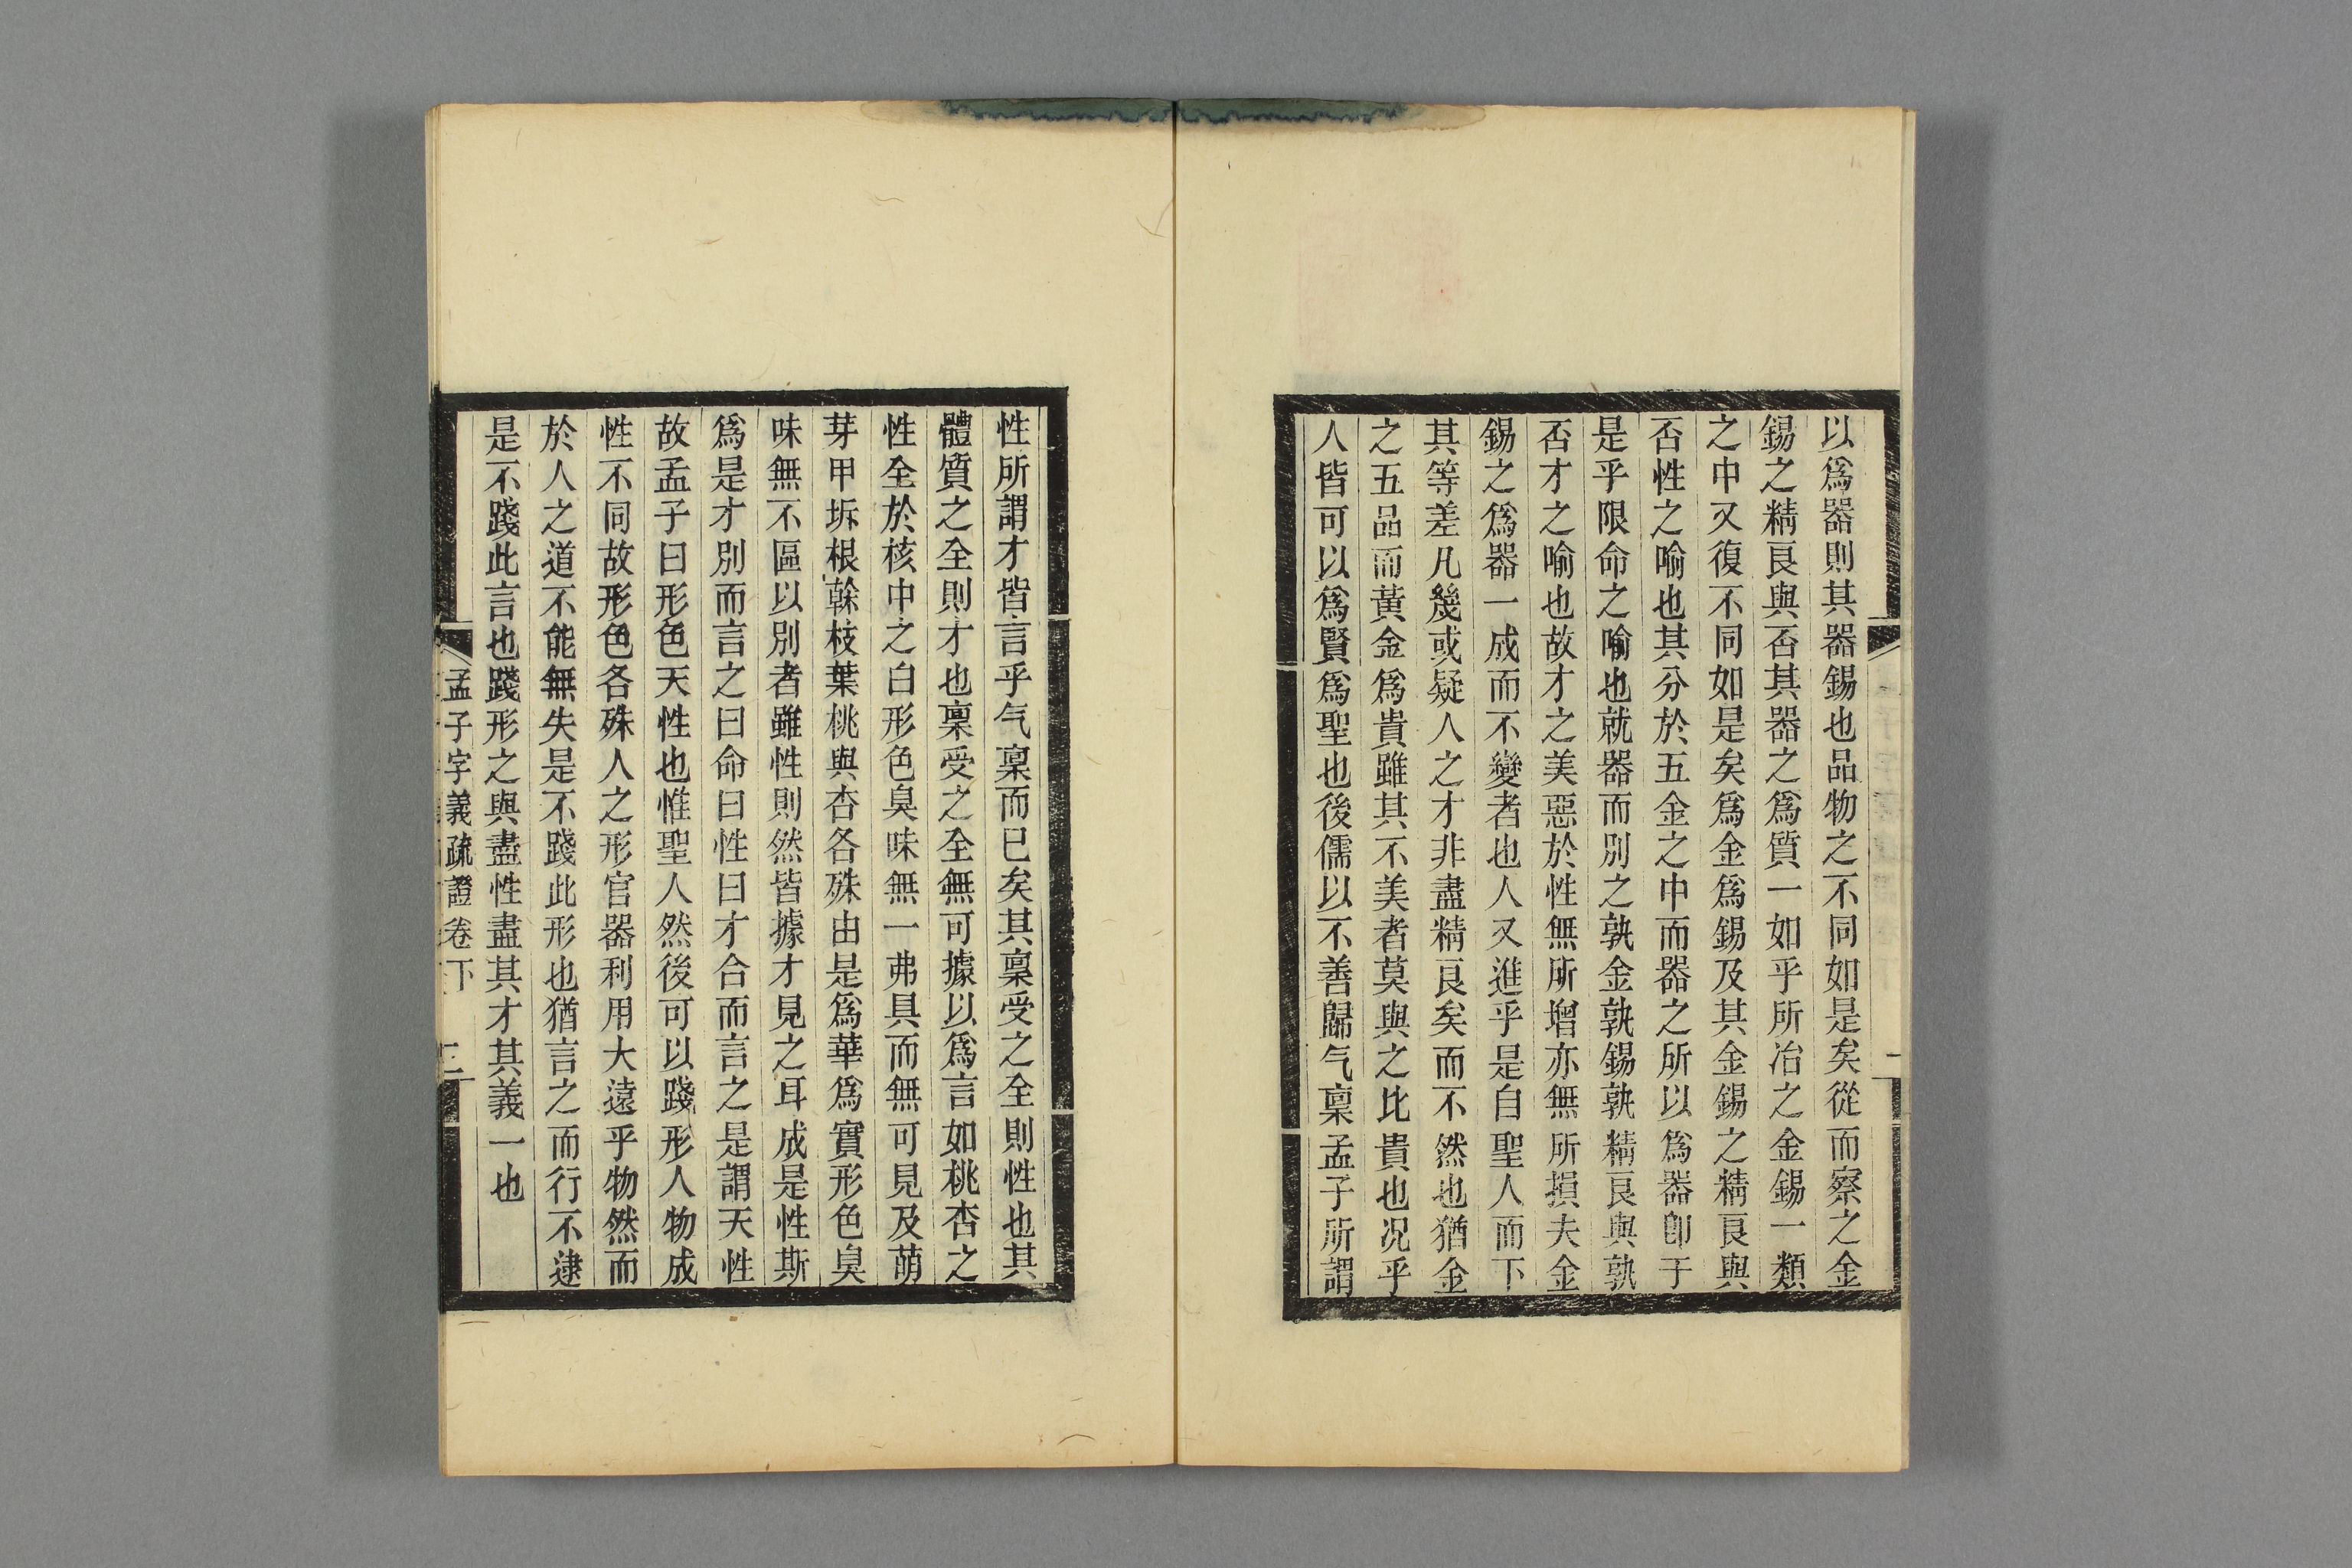 以爲器則其器錫也品物之不同如是矣從而察之金
錫之精良與否其器之爲質一如乎所冶之金錫一類
之中又復不同如是矣爲金爲錫及其金錫之精良與
否性之喻也其分於五金之中而器之所以爲器卽于
是乎限命之喻也就器而別之孰金孰錫孰精良與孰
否才之喻也故才之美惡於性無所增亦無所損夫金
錫之爲器一成而不變者也人又進乎是自聖人而下
其等差凡幾或疑人之才非盡精良矣而不然也猶金
之五品而黃金爲貴雖其不美者莫與之比貴也况乎
人皆可以爲賢爲聖也後儒以不善歸气稟孟子所謂
性所謂才皆言乎气稟而已矣其稟受之全則性也其
體質之全則才也稟受之全無可據以爲言如桃杏之
性全於核中之白形色臭味無一弗具而無可見及萌
芽甲坼根榦枝葉桃與杏各殊由是爲華爲實形色臭
味無不區以別者雖性則然皆據才見之耳成是性斯
爲是才別而言之曰命曰性曰才合而言之是謂天性
故孟子曰形色天性也惟聖人然後可以踐形人物成
性不同故形色各殊人之形官器利用大遠乎物然而
於人之道不能無失是不踐此形也猶言之而行不逮
是不踐此言也踐形之與盡性盡其才其義一也
孟子字義疏證卷下